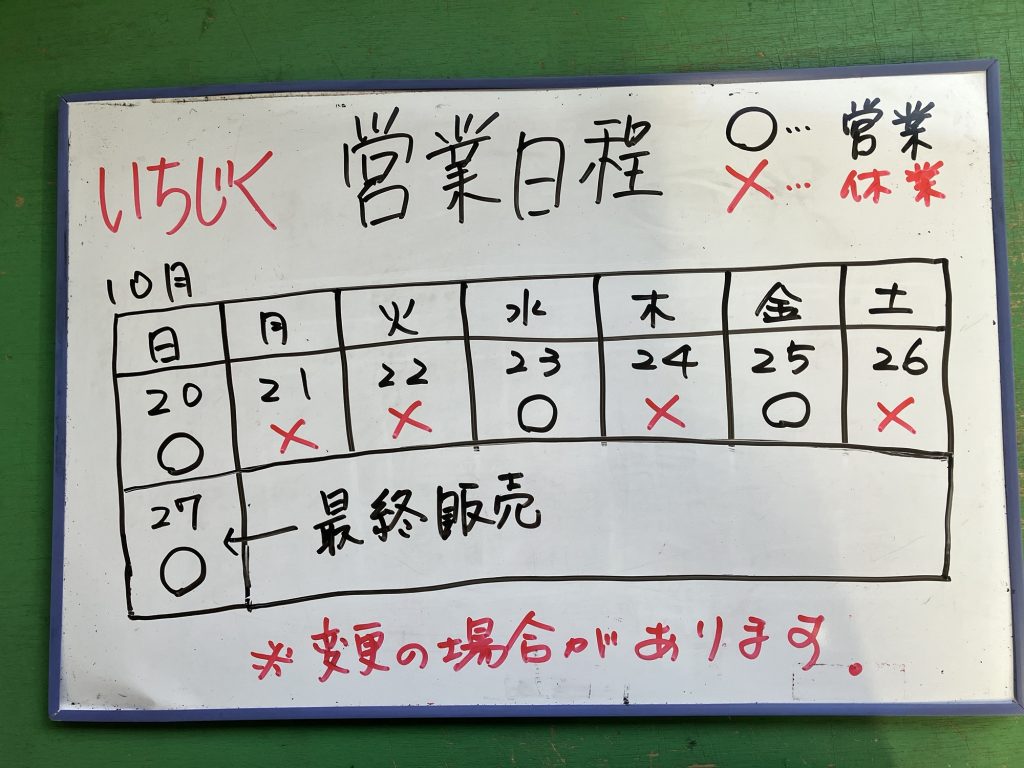 いちじく 営業日程 ○…営業
×…休業
10月
日 月 火 水 木 金 土
20 21 22 23 24 25 26
○ × × ○ × ○ ×
27 ← 最終販売
○
※変更の場合があります.